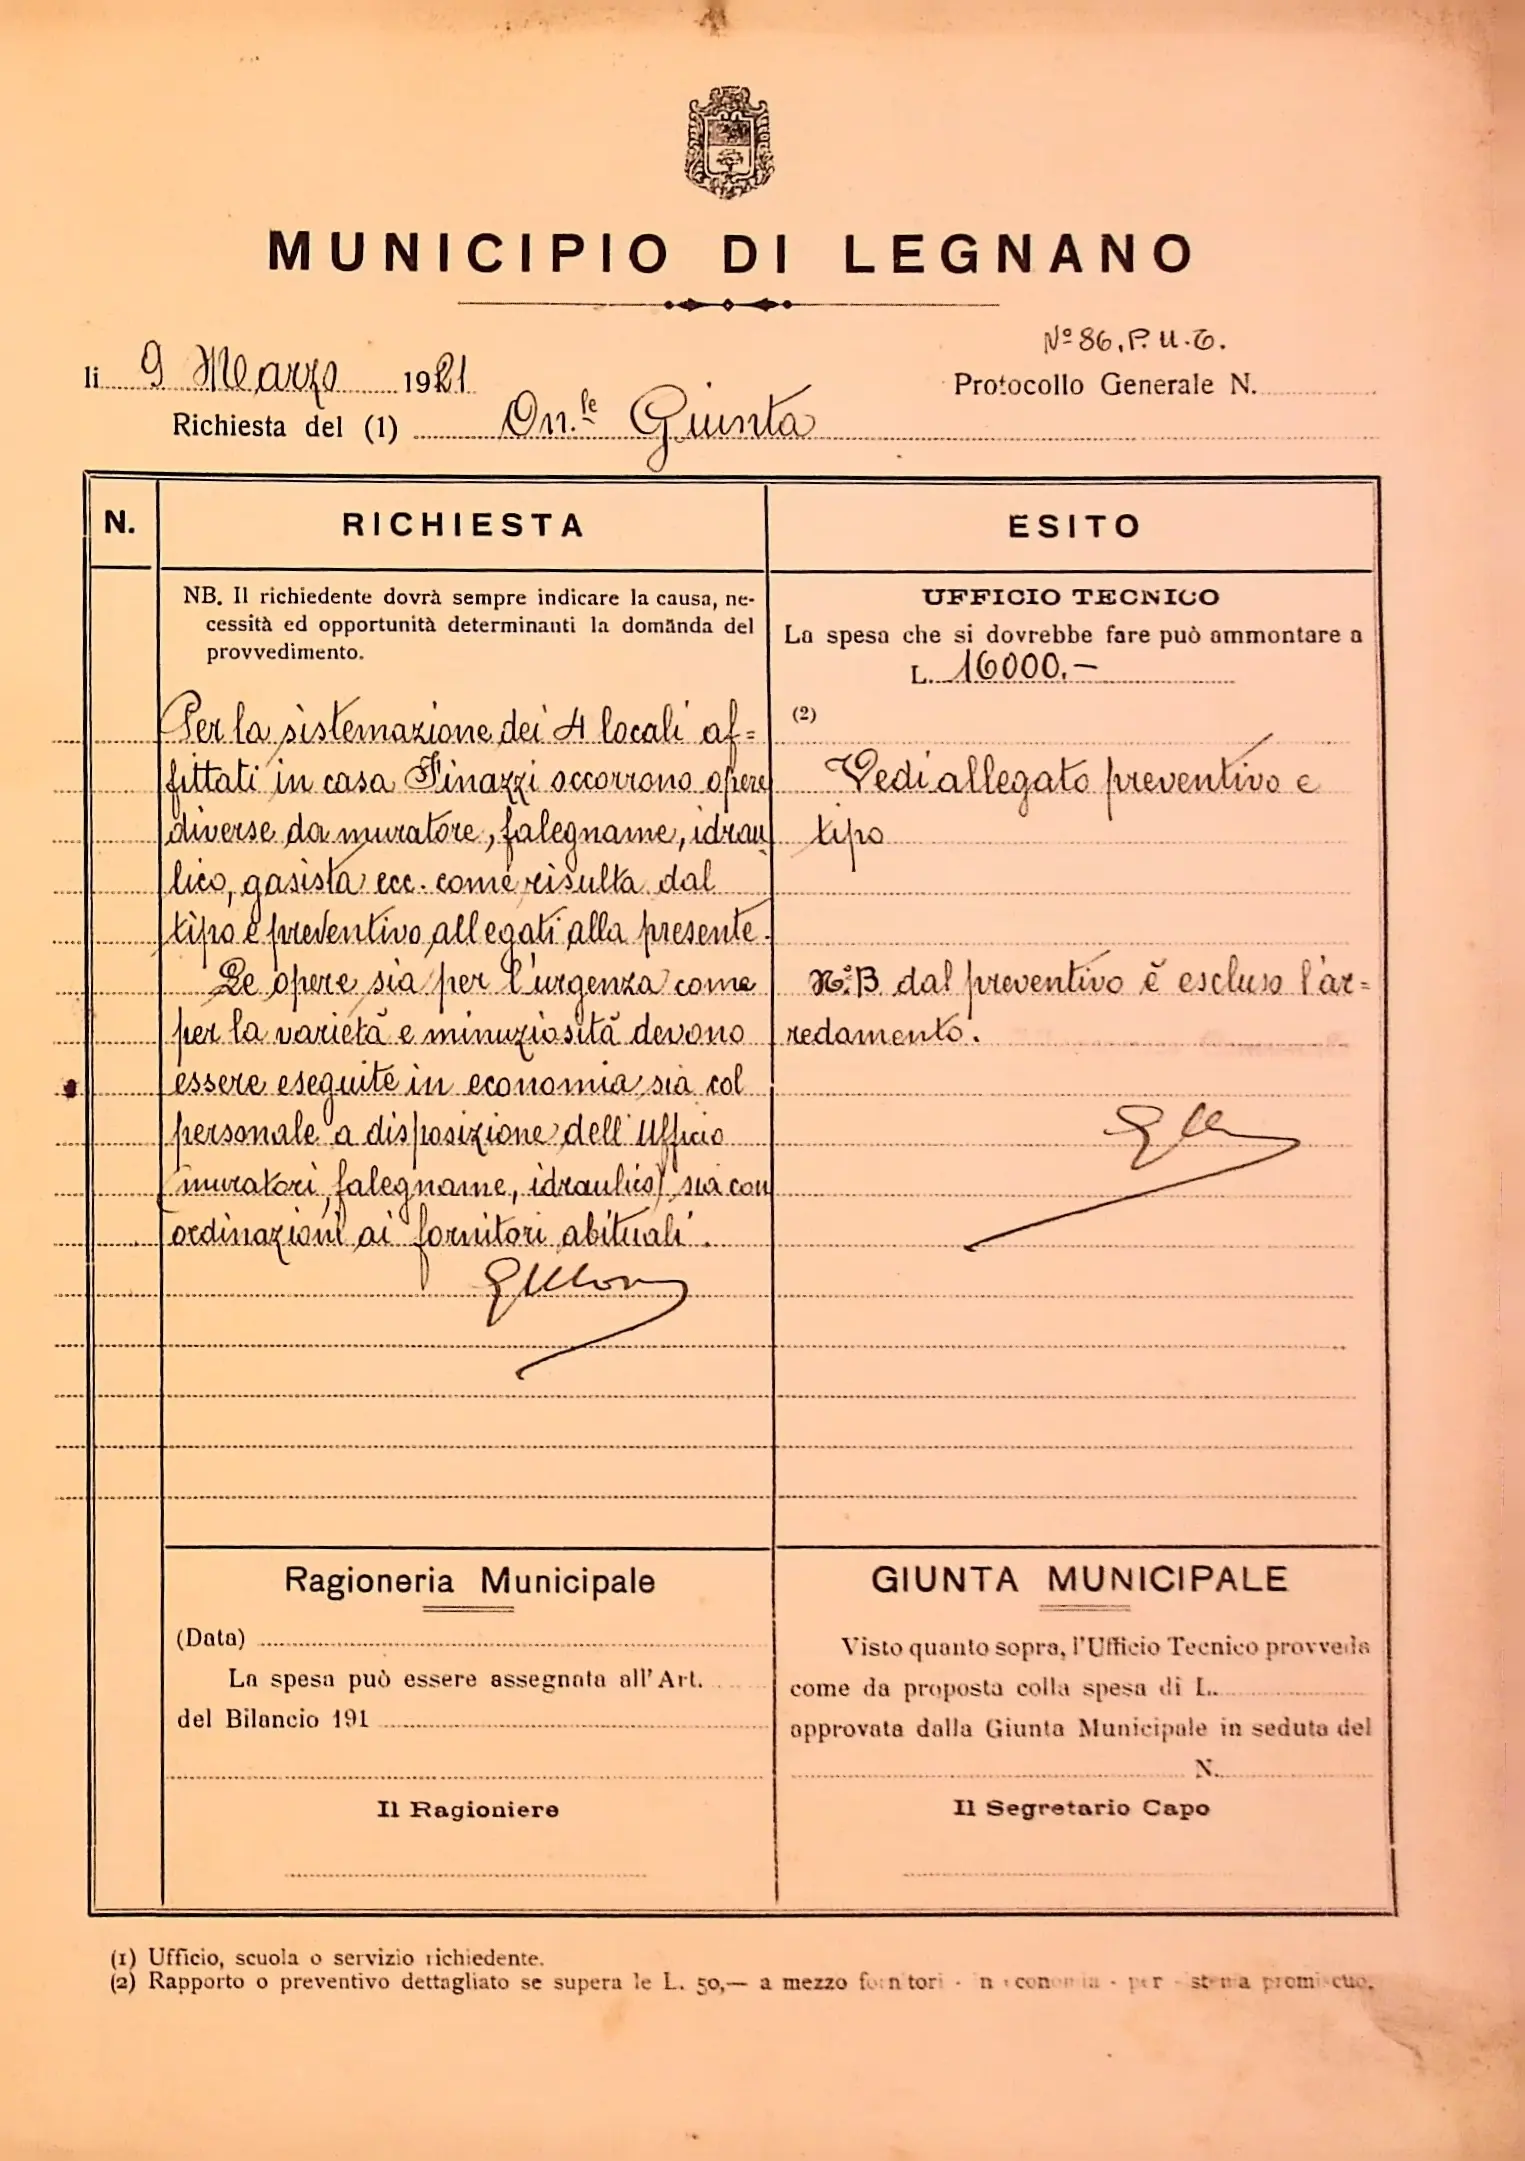 MUNICIPIO DI LEGNANO
Nº 86. P. U. T.
li 9 Marzo 1921
Protocollo Generale N.
Richiesta del (1) On.le Giunta
N.
RICHIESTA
NB. Il richiedente dovrà sempre indicare la causa, ne-
cessità ed opportunità determinanti la domanda del
provvedimento.
Per la sistemazione dei 4 locali af=
fittati in casa Finazzi occorrono opere
diverse da muratore, falegname, idrau
lico, gasista ecc. come risulta dal
tipo e preventivo allegati alla presente.
Le opere sia per l'urgenza come
per la varietà e minuziosità devono
essere eseguite in economia sia col
personale a disposizione dell'Ufficio
(muratori, falegname, idraulico) sia con
ordinazioni ai fornitori abituali.
ESITO
UFFICIO TECNICO
La spesa che si dovrebbe fare può ammontare a
L. 16000.-
(2)
Vedi allegato preventivo e
tipo
N.B. dal preventivo è escluso l'ar=
redamento.
Ragioneria Municipale
(Data)
La spesa può essere assegnata all'Art.
del Bilancio 191
Il Ragioniere
GIUNTA MUNICIPALE
Visto quanto sopra, l'Ufficio Tecnico provveda
come da proposta colla spesa di L.
approvata dalla Giunta Municipale in seduta del
N.
Il Segretario Capo
(1) Ufficio, scuola o servizio richiedente.
(2) Rapporto o preventivo dettagliato se supera le L. 50,— a mezzo fornitori - in economia - per sistema promiscuo.